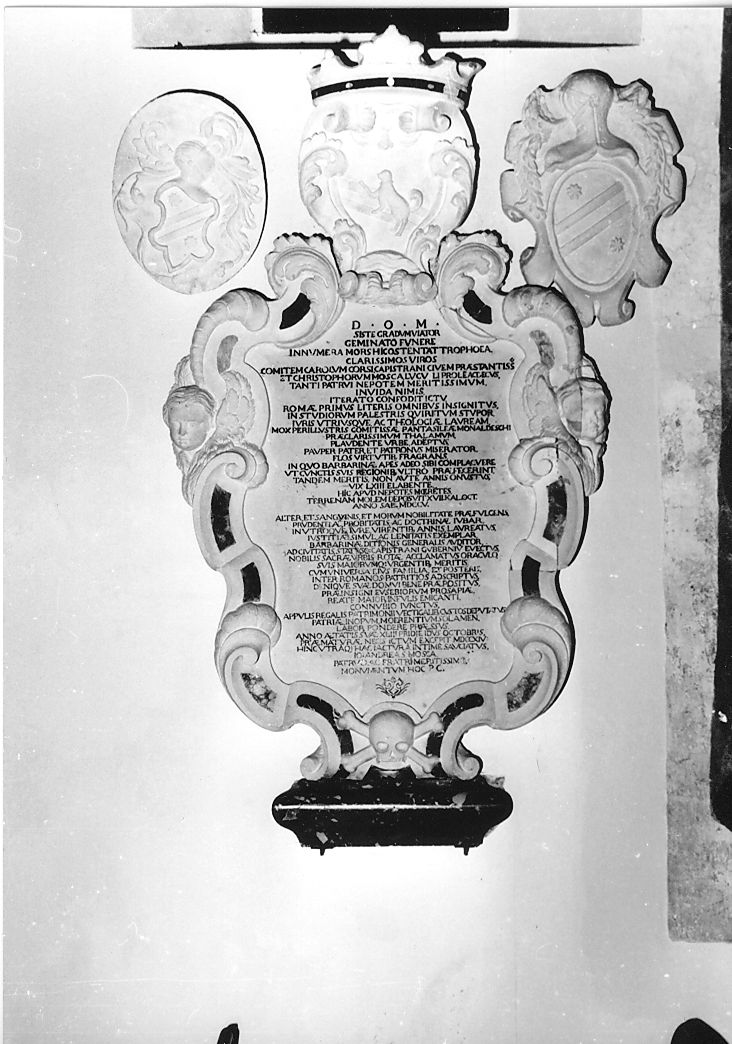 D · O · M ·
SISTE GRADUM VIATOR
GEMINATO FUNERE
INNUMERA MORS HIC OSTENTAT TROPHOEA,
CLARISSIMOS VIROS
COMITEM CAROLUM CORSI CAPISTRANI CIVEM PRÆSTANTISS
ET CHRISTOPHORUM MOSCA LUCU
TANTI PATRUI NEPOTEM MERITISSIMUM,
INVIDA NIMIS
ITERATO CONFODIT ICTU
ROMÆ PRIMUS LITERIS OMNIBUS INSIGNITUS,
IN STUDIORUM PALESTRIS QUIRITUM STUPOR,
IURIS UTRIUSQUE, AC THEOLOGIÆ LAUREAM,
MOX PERILLUSTRIS COMITISSÆ PANTASILEÆ MONALDESCHI
PRÆCLARISSIMUM THALAMUM,
PLAUDENTE URBE ADEPTUS
PAUPER PATER ET PATRONUS MISERATOR
FLOS VIRTUTIB. FRAGRANS
IN QUO BARBARINÆ APES ADEO SIBI COMPLACUERE
UT CUNCTIS SUIS REGIONIB. ULTRO PRÆFECERINT
TANDEM MERITIS, NON AUTE ANNIS ONUSTUS
VIX LXIII ELABENTE
HIC APUD NEPOTES MŒRETES
TERRENAM MOLEM DEPOSUIT XVII KAL. OCT.
ANNO SAL. MDCCV.
ALTER ET SANGUINIS, ET MORUM NOBILITATE PRÆFULGENS,
PRUDENTIÆ, PROBITATIS, AC DOCTRINÆ IUBAR,
IN UTROQUE IURE VIRENTIB. ANNIS LAUREATUS,
IUSTITIÆ SIMUL, AC LENITATIS EXEMPLAR
BARBARINÆ DITIONIS GENERALIS AUDITOR,
AD CIVITATIS, STATUSQ; CAPISTRANI GUBERNIU EVECTUS
NOBILIS SACRÆ URBIS ROTÆ ACCLAMATUS ORACULO,
SUIS MAIORUMQ; URGENTIB. MERITIS
CUM UNIVERSA EIUS FAMILIA, ET POSTERIS,
INTER ROMANOS PATRITIOS ADSCRIPTUS,
DENIQUE SUÆ DOMUI BENE PRÆPOSITUS,
PRÆINSIGNI EUSEBIORUM PROSAPIÆ,
REATE MAIOR INFULIS EMICANTI,
CONNUBIO IUNCTUS,
APPULIS REGALIS PATRIMONII VECTIGALIB. CUSTOS DEPUTATUS
PATRIÆ INOPUM, MOERENTIUM SOLAMEN,
LABOR PONDERE PRÆSSUS,
ANNO ÆTATIS SUÆ XLIII PRIDIE IDUS OCTOBRIS,
PRÆMATURÆ NECIS ICTUM EXCEPIT MDCCXV
HINC UTRAQ; HAC IACTURA INTIME SAUCIATUS,
IO: ANDREAS MOSCA
PATRUO, AC FRATRI MERITISSIMIS
MONUMENTUM HOC P. C.